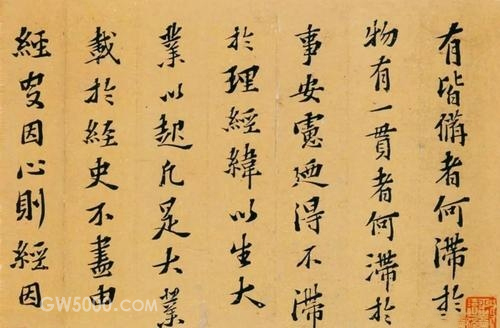 有皆備者何滯於
物有一貫者何滯於
事安慮迺得不滯
於理經緯以生大
業以起凡是大業
載於経史不盡由
經史因心則經因
GW5000.com